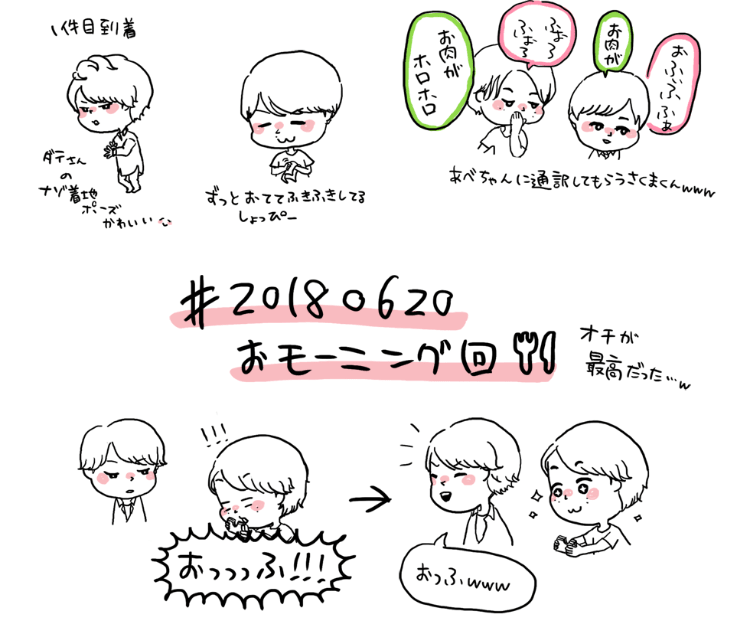 1件目到着
ダテさん
の
ナゾ着地
ポーズ
かわいい
ずっとおててふきふきしてる
しょっぴー
お肉が
ホロホロ
ふぉろ
ふぉろ
お肉が
おふぃふぃふぁ
あべちゃんに通訳してもらうさくまくんwww
#20180620
おモーニング回
オチが
最高だった…w
!!!
おっっっふ!!!
おっふwww